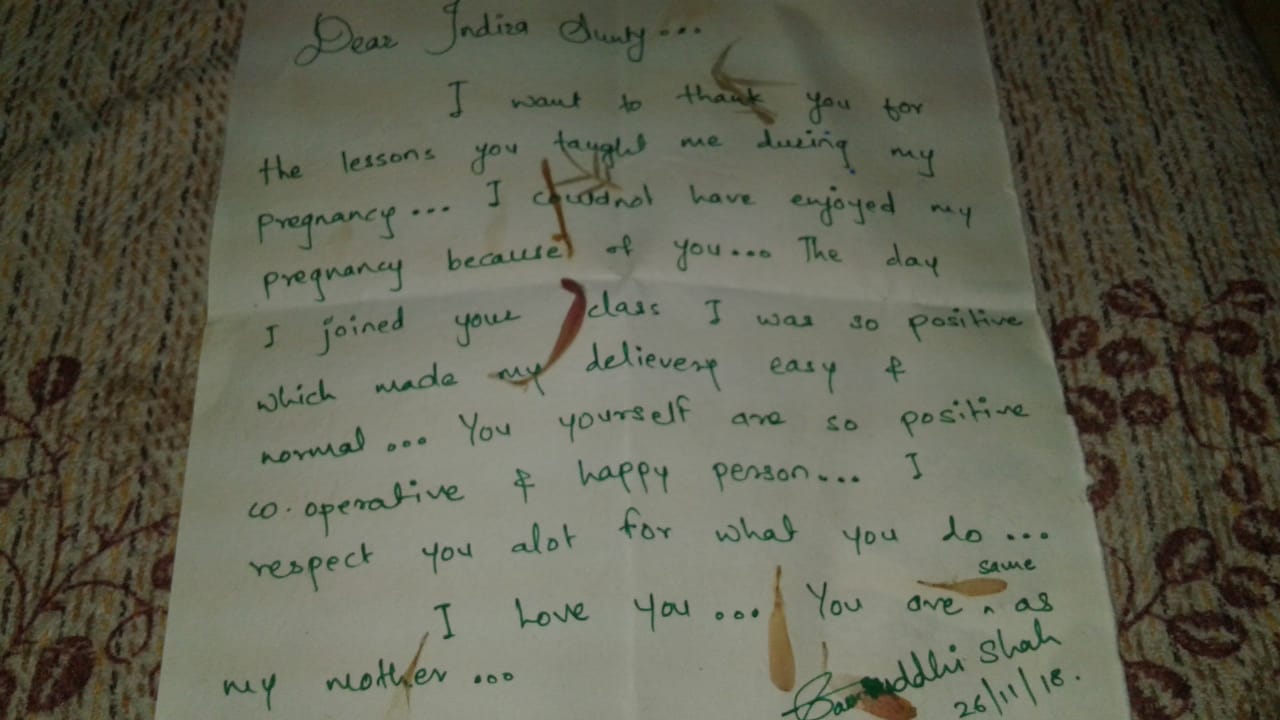 Dear Indira Aunty...
I want to thank you for
the lessons you taught me during my
pregnancy... I couldnot have enjoyed my
pregnancy because of you... The day
I joined your class I was so positive
which made my delievery easy &
normal... You yourself are so positive
co.operative & happy person... I
respect you alot for what you do...
I Love you... You are same as
my mother...
Samruddhi Shah
26/11/18.